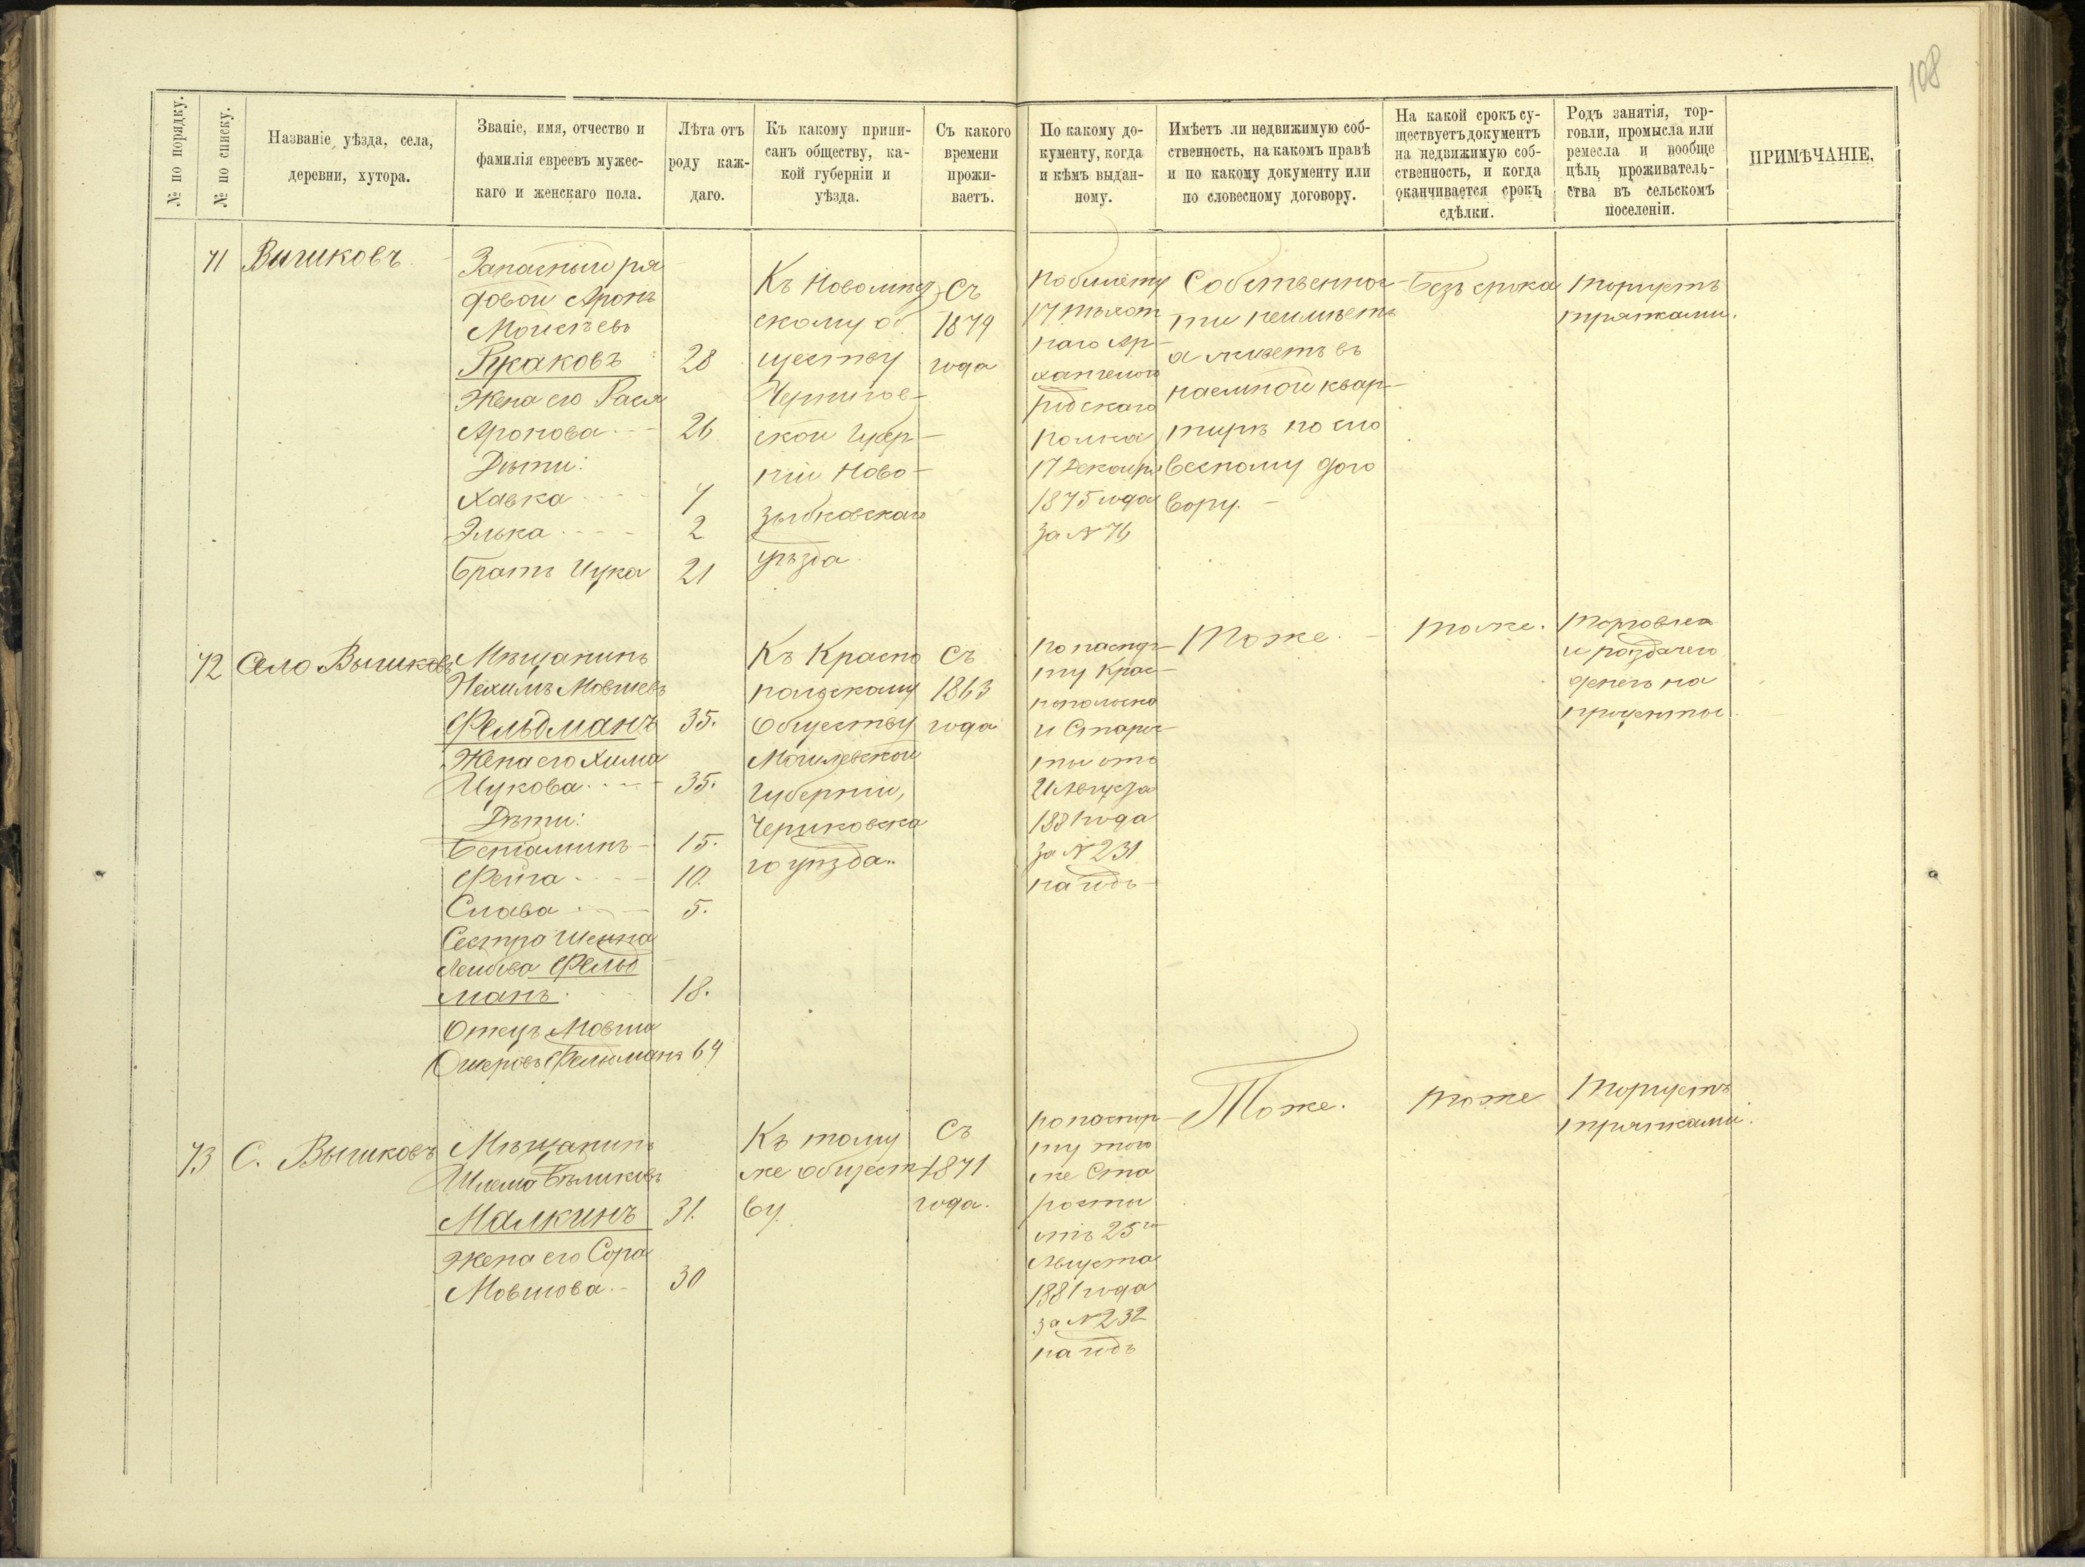 108
№ по порядку.
№ по списку.
Названіе уѣзда, села,
деревни, хутора.
Званіе, имя, отчество и
фамилія евреевъ мужес-
каго и женскаго пола.
Лѣта отъ
роду каж-
даго.
Къ какому припи-
санъ обществу, ка-
кой губерніи и
уѣзда.
Съ какого
времени
прожи-
ваетъ.
По какому до-
кументу, когда
и кѣмъ выдан-
ному.
Имѣетъ ли недвижимую соб-
ственность, на какомъ правѣ
и по какому документу или
по словесному договору.
На какой срокъ су-
ществуетъ документъ
на недвижимую соб-
ственность, и когда
оканчивается срокъ
сдѣлки.
Родъ занятія, тор-
говли, промысла или
ремесла и вообще
цѣль проживатель-
ства въ сельскомъ
поселеніи.
ПРИМѢЧАНІЕ.
71
Вышковъ
Запасный ря
довой Аронъ
Моисѣевъ
Рукаковъ 28
Жена его Рася
Аронова 26
Дѣти:
Хавка 7
Элька 2
Братъ Цука 21
Къ Новомѣст
скому об
ществу
Чернигов-
ской Губер-
ніи Ново-
зыбковскаго
уѣзда
Съ
1879
года
По билету
17 пѣхот
наго Ар-
хангело
родскаго
полка
17 Декабря
1875 года
за № 76
Собственнос-
ти неимѣетъ
а живетъ въ
наемной квар-
тирѣ по сло
весному дого
вору. -
Безъ срока
Торгуетъ
тряпками.
72
Село Вышковъ
Мѣщанинъ
Нехимъ Мовшевъ
Фельдманъ 35.
Жена его Хима
Цукова 35.
Дѣти:
Беніаминъ 15.
Фейга 10.
Слава 5.
Сестра Шенка
Лейбова Фельд
манъ 18.
Отецъ Мовша
Ошеровъ Фельдманъ 64
Къ Красно
польскому
Обществу
Могилевской
Губерніи,
Чериковска
го уѣзда..
Съ
1863
года
По паспор-
ту Крас-
нопольско
и Старос-
ты отъ
1881 года
за № 231
на годъ
Тоже.
тоже.
Торговля
и раздачею
денегъ на
проценты.
73
С. Вышковъ
Мѣщанинъ
Шлема
Малкинъ 31.
Жена его Сора
Мовшова 30
Къ тому
же общест
ву.
Съ
1871
года.
По паспор-
ту того
же Ста
росты
отъ 25го
Августа
1881 года
за № 232
на годъ
Тоже.
тоже
Торгуетъ
тряпками.